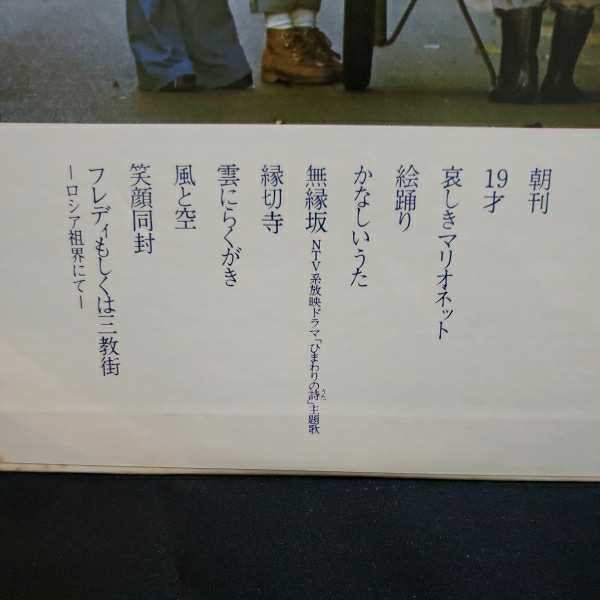 朝刊
19才
哀しきマリオネット
絵踊り
かなしいうた
無縁坂 NTV系放映ドラマ「ひまわりの詩」主題歌
うた
縁切寺
雲にらくがき
風と空
笑顔同封
フレディもしくは三教街
―ロシア祖界にて―